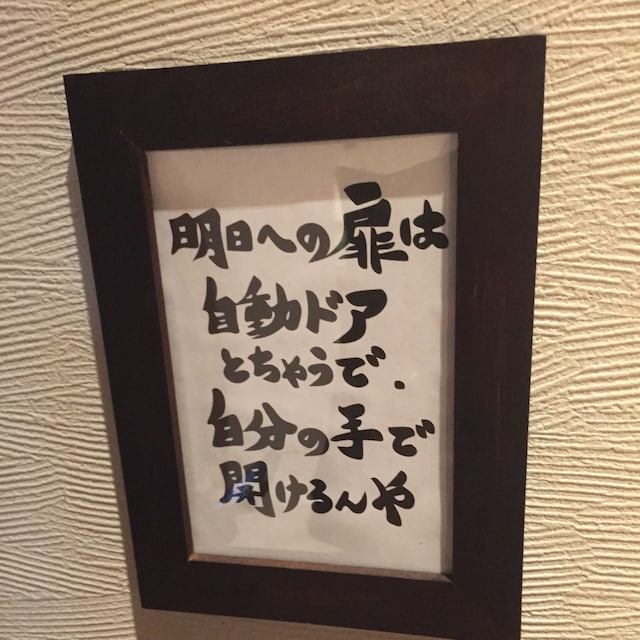 明日への扉は
自動ドア
とちゃうで.
自分の手で
開けるんや